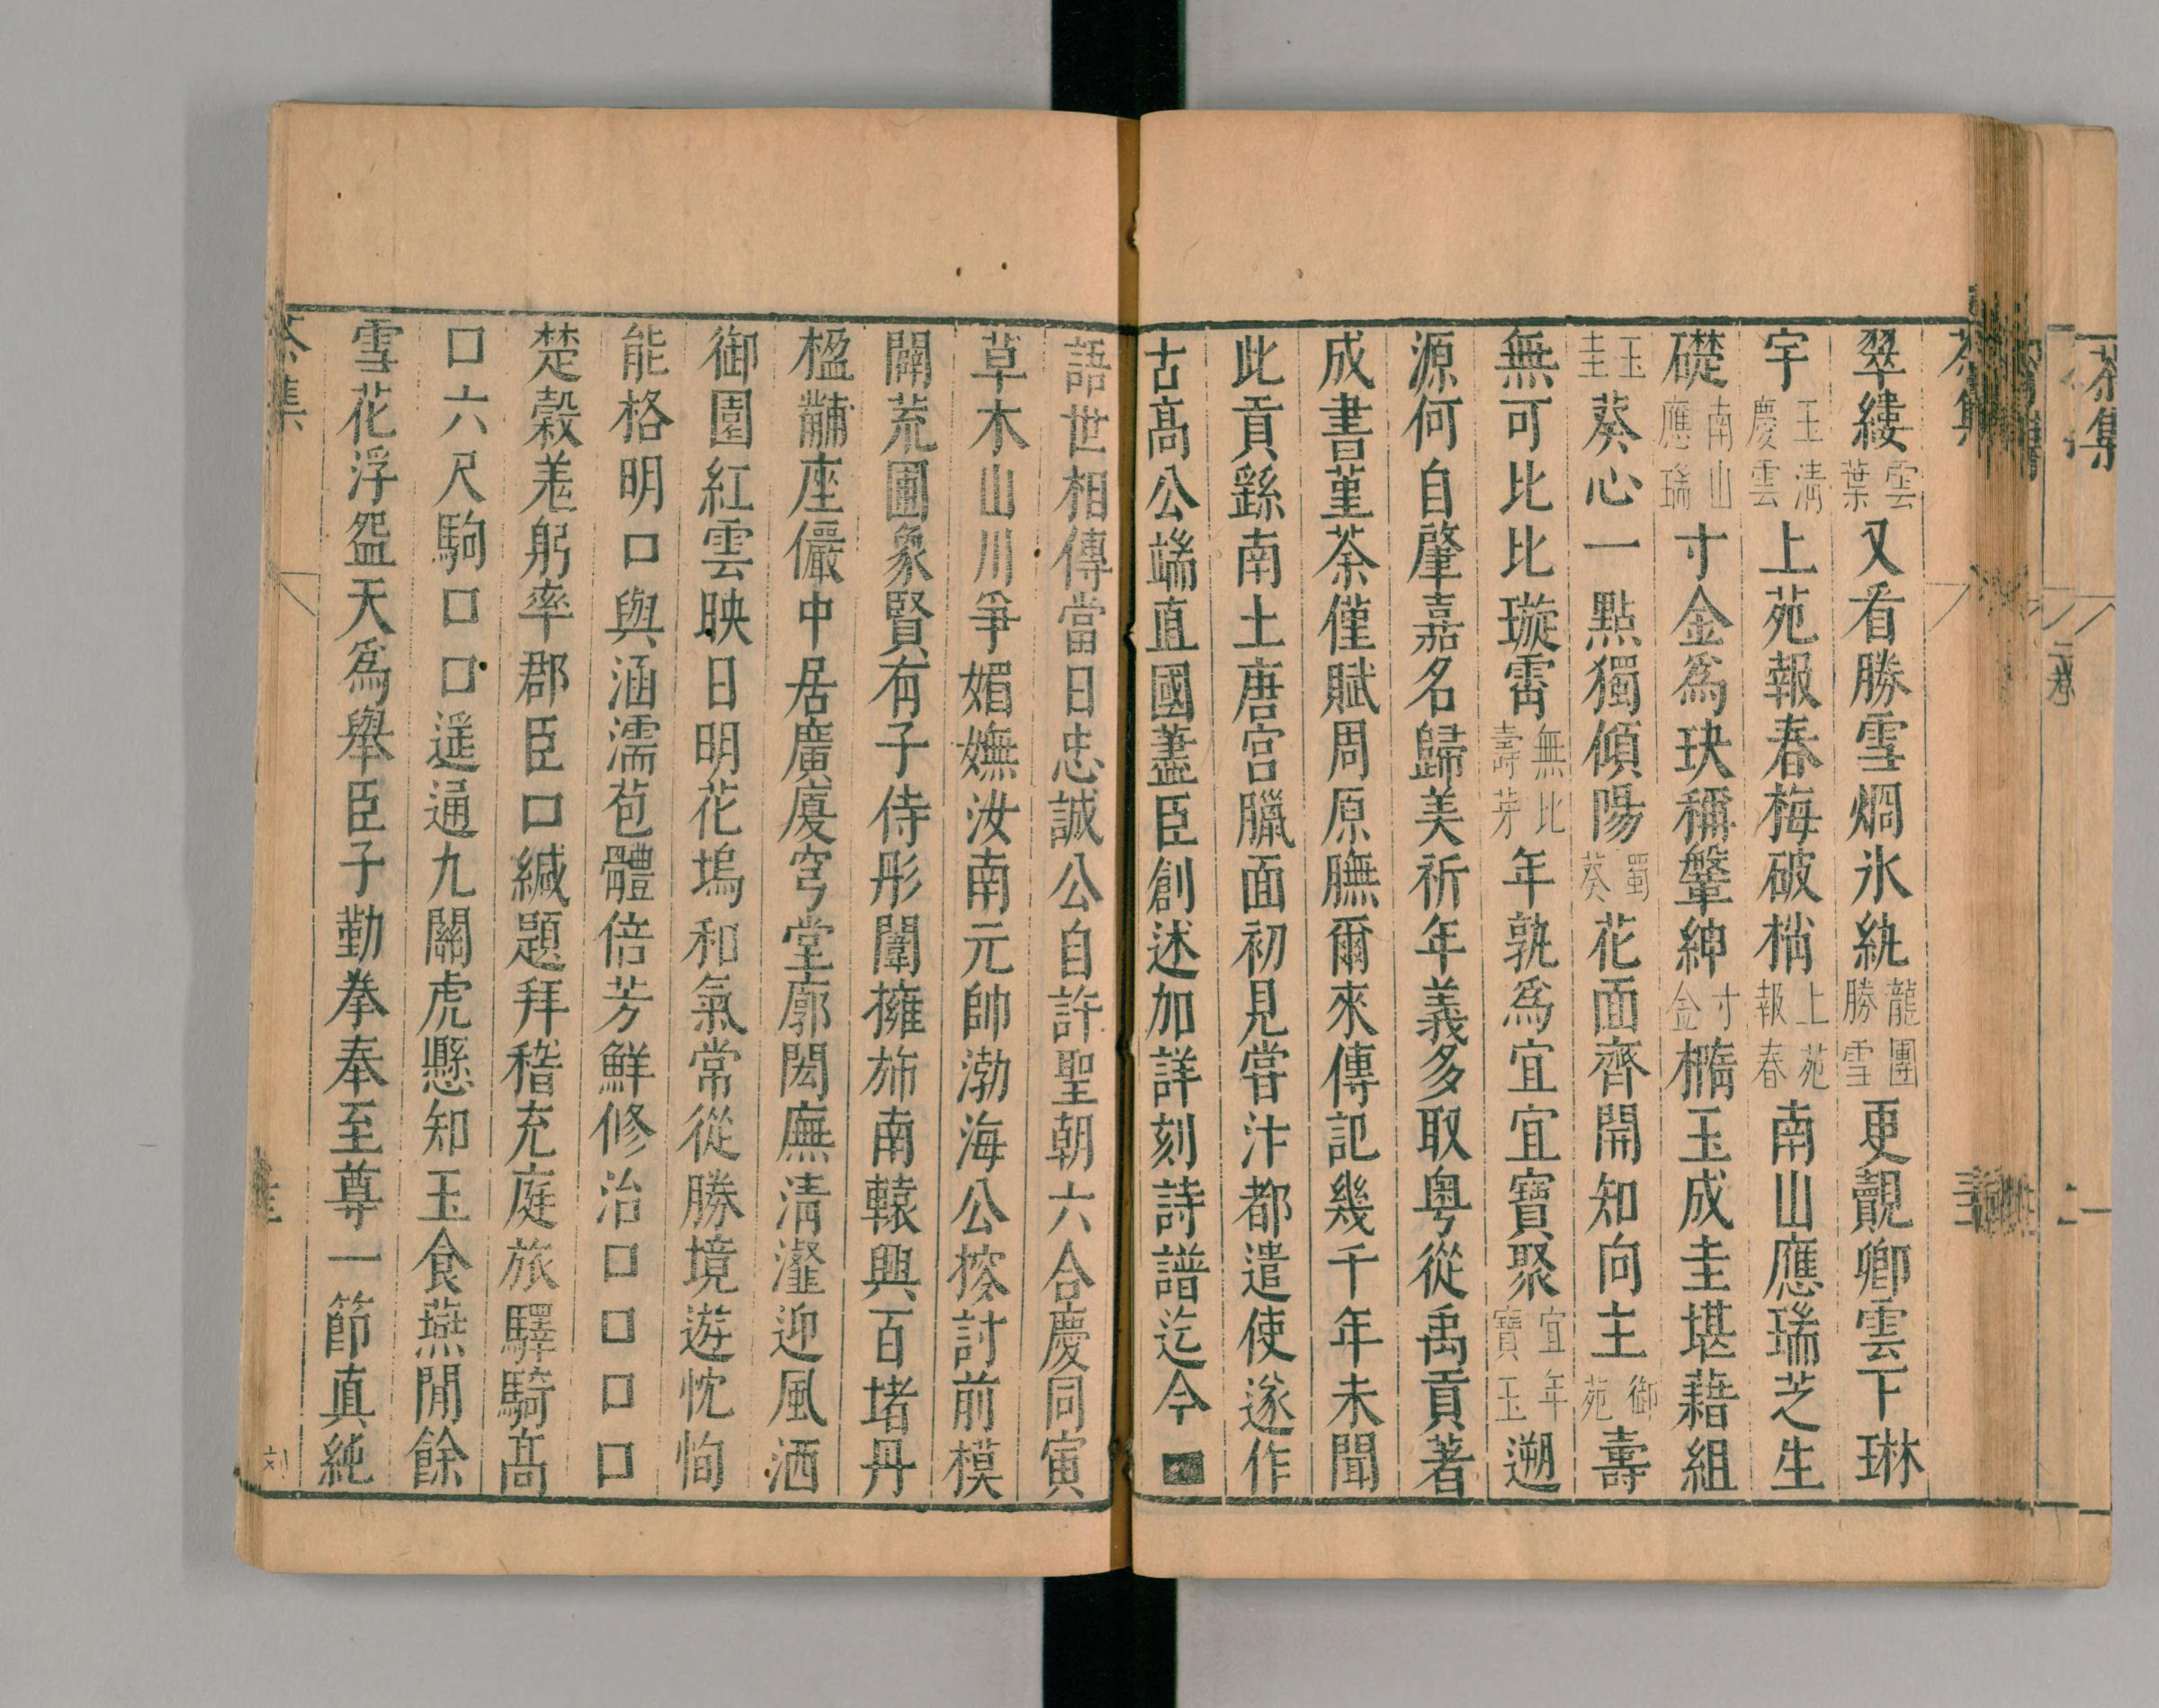 翠縷雲葉又看勝雪烱氷紈龍團勝雪更覩卿雲下琳
宇玉清慶雲上苑報春梅破梢上苑報春南山應瑞芝生
礎南山應瑞寸金為玦稱鞶紳寸金橢玉成圭堪藉組
玉圭葵心一點獨傾陽蜀葵花面齊開知向主御苑壽
無可比比璇霄無比壽芽年孰為宜宜寶聚宜年寶玉遡
源何自肇嘉名歸美祈年義多取粤從禹貢著
成書菫荼僅賦周原膴爾來傳記幾千年未聞
此貢繇南土唐宮臘面初見嘗汴都遣使遂作
古高公端直國藎臣創述加詳刻詩譜迄今
語世相傳當日忠誠公自許聖朝六合慶同寅
草木山川爭媚嫵汝南元帥渤海公搜討前模
闢荒圃象賢有子侍彤闈擁斾南轅興百堵丹
楹黼座儼中居廣廈穹堂廓閎廡清瀣迎風洒
御園紅雲映日明花塢和氣常從勝境遊忱恂
能格明口與涵濡苞體倍芳鮮修治口口口口
楚穀羞躬率郡臣口緘題拜稽充庭旅驛騎高
口六尺駒口口遥通九關虎懸知玉食燕閒餘
雪花浮盌天為舉臣子勤拳奉至尊一節真純
茶集